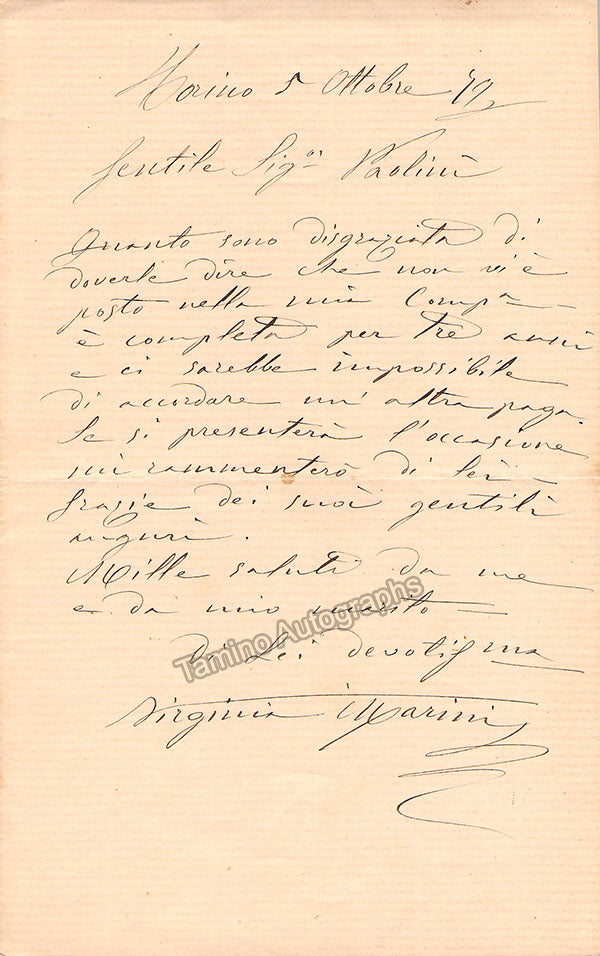 Torino 5 Ottobre 79
Gentile Sigor Paolini
Quanto sono disgraziata di
doverle dire che non vi è
posto nella mia Compa
è completa per tre anni
e ci sarebbe impossibile
di accordare un' altra paga.
Se si presenterà l'occasione
mi rammenterò di lei -
Grazie dei suoi gentili
auguri.
Mille saluti da me
e da mio marito
di Lei devotisma
Virginia Marini
Tamino Autographs